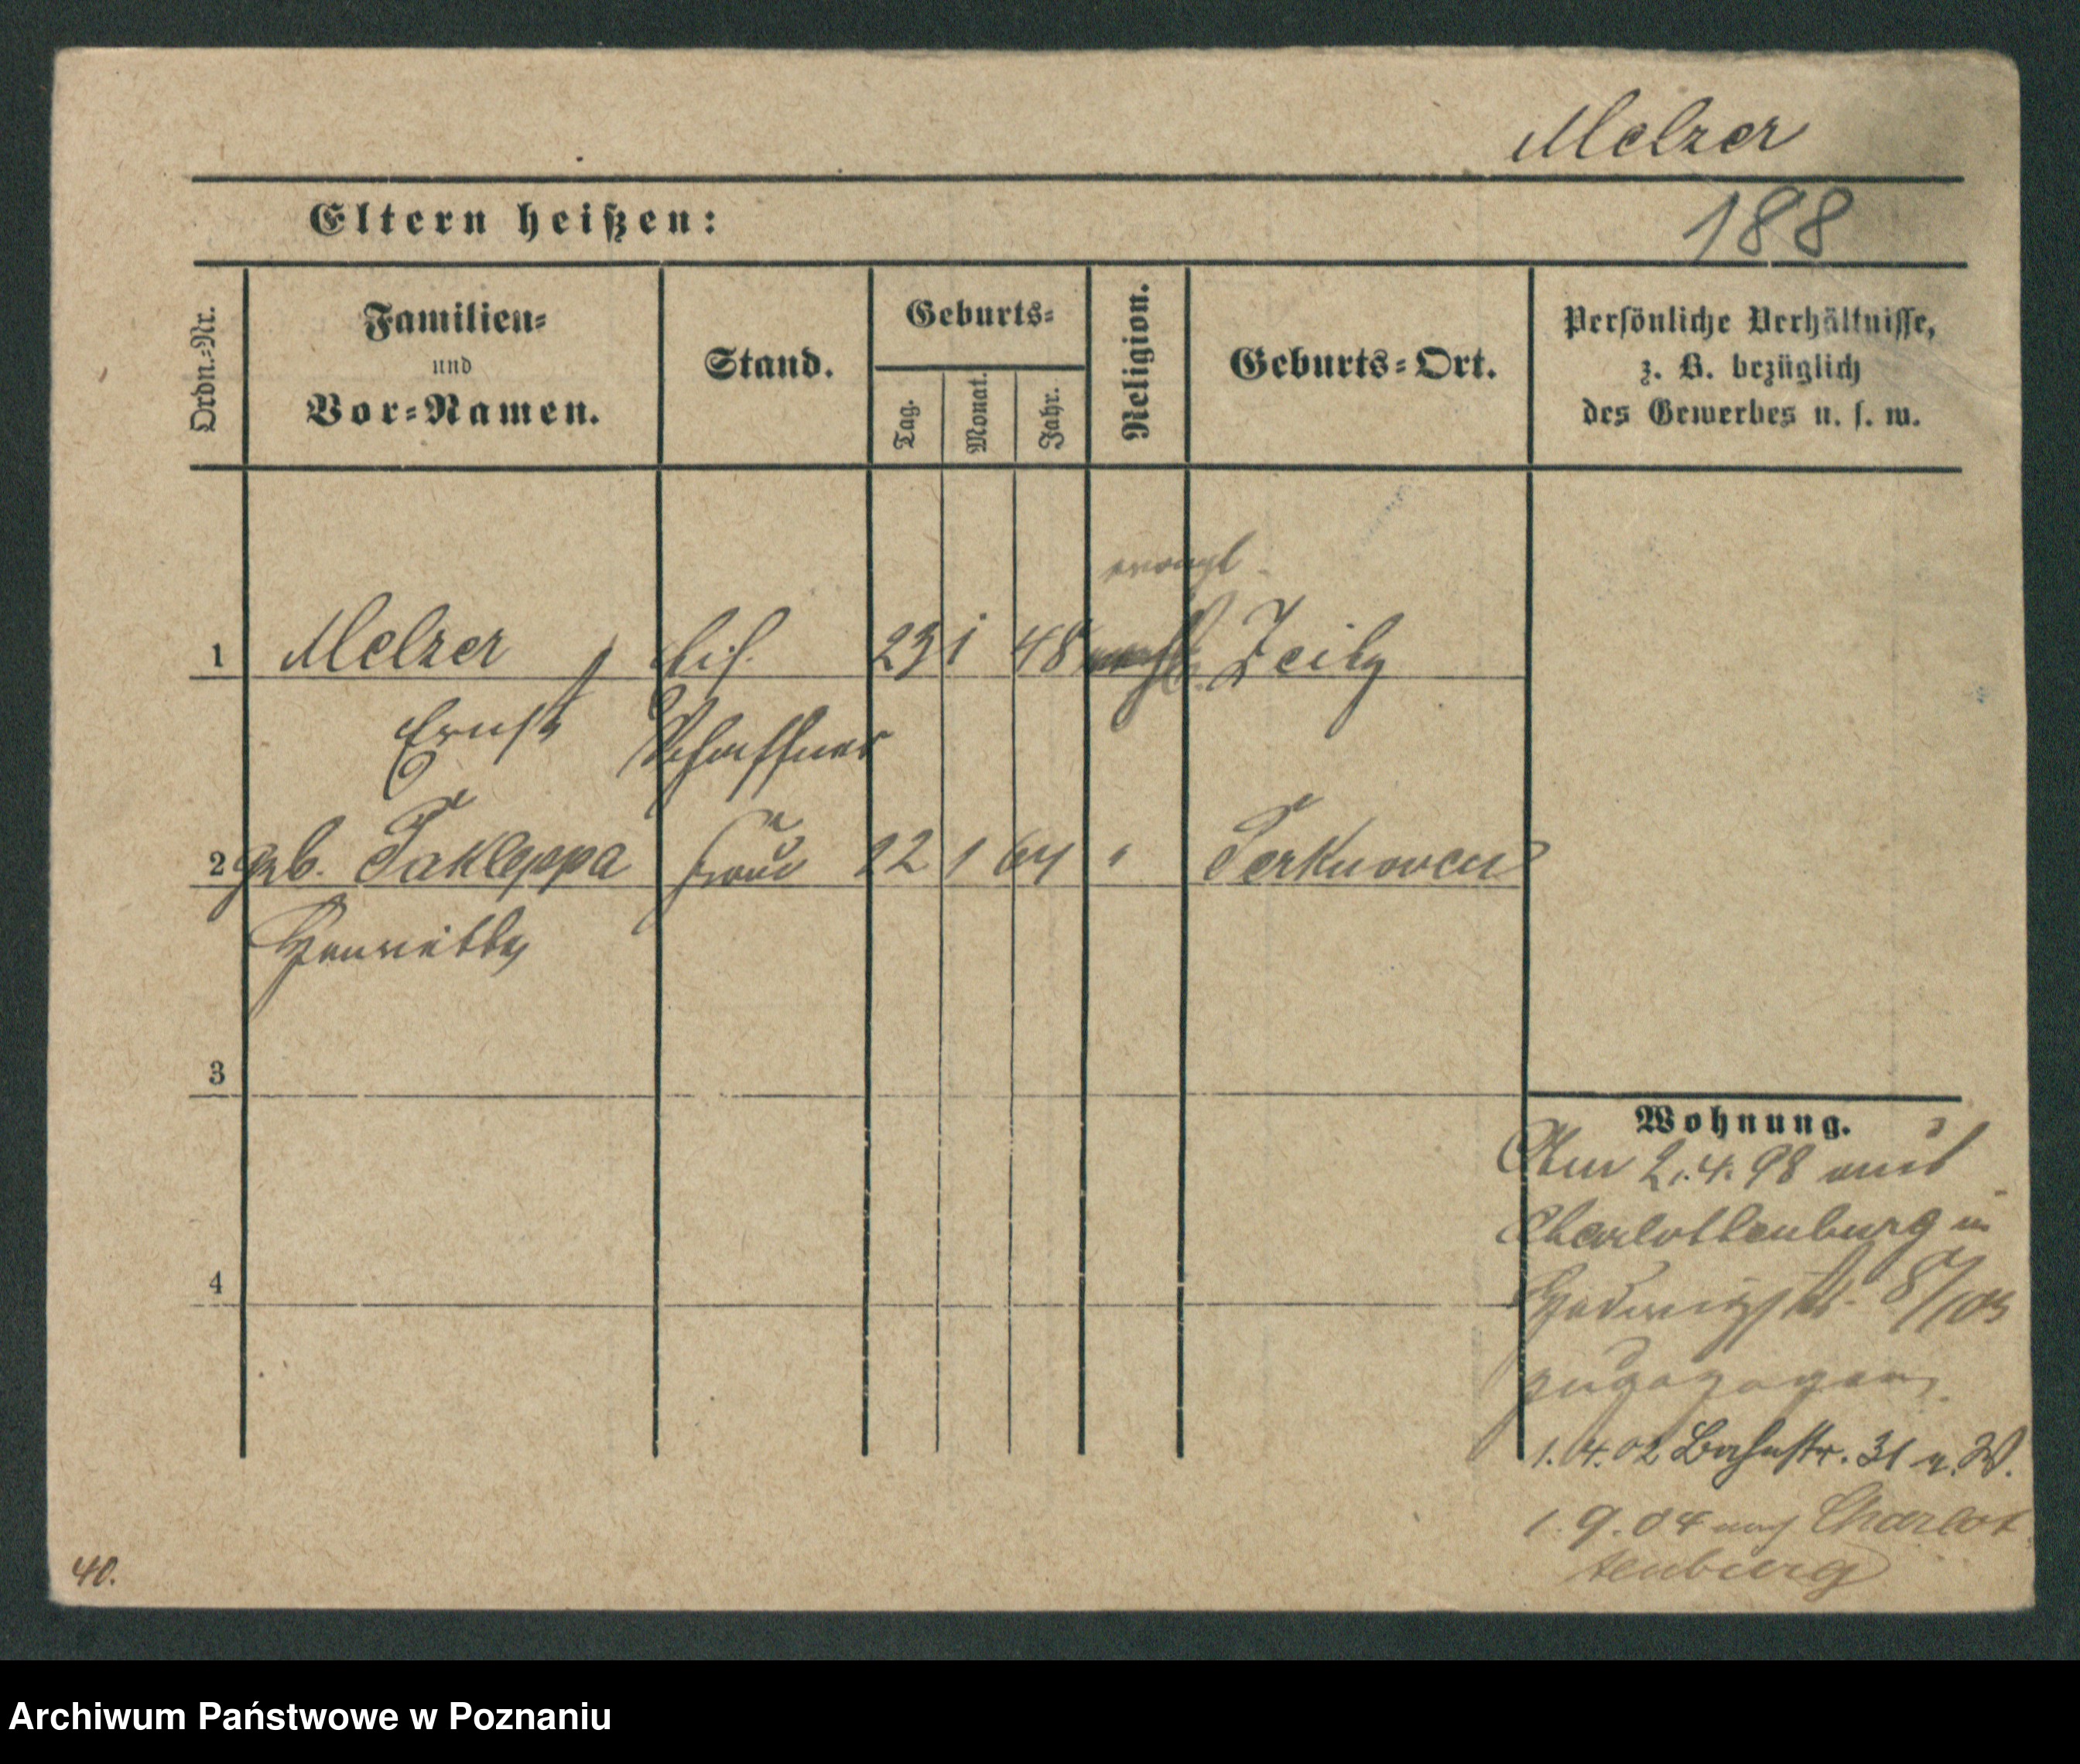 Melzer
188
Eltern heißen:
Ordn.=Nr.
Familien=
und
Vor=Namen.
Stand.
Geburts=
Tag.
Monat.
Jahr.
Religion.
Geburts=Ort.
Persönliche Verhältnisse,
z. B. bezüglich
des Gewerbes u. s. w.
evangl
1 Melzer 23 1 48 Zeitz
Ernst Schaffner
2 geb. Takleppa Frau 22 1 64 " Terknowen
Henriette
3
4
Wohnung.
Am 2.4.98 aus
Charlottenburg in
Hedwigstr. 8/
zugezogen
1.4.02 Bahnstr. 31 v. W.
1.9.04 nach Charlot
tenburg
40.
Archiwum Państwowe w Poznaniu